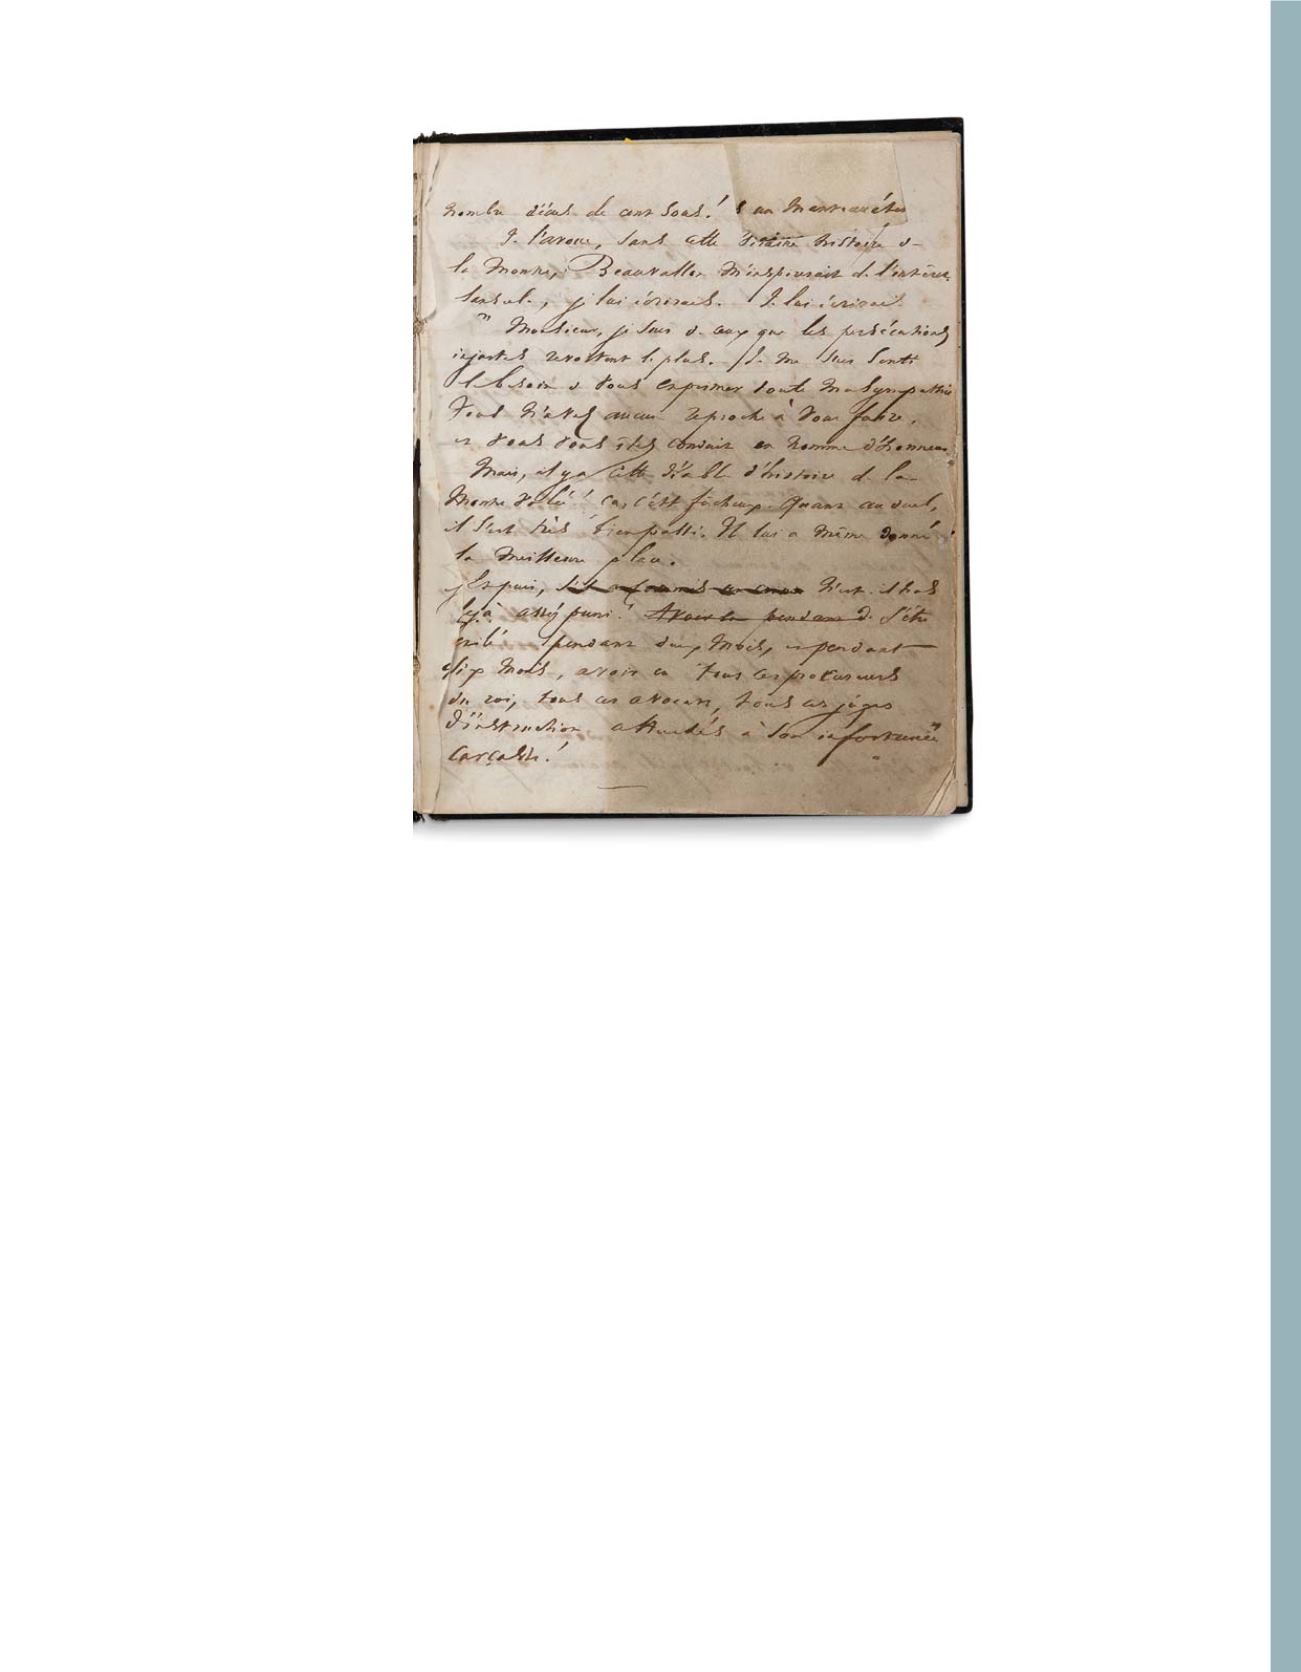 nombre d'écus de cent sous! s
Je l'avoue, sans cette histoire de
la montre, Beauvallon m'inspirerait de l'intérêt.
je lui écrirais. Je lui écrirais:
"Monsieur, je suis de ceux que les persécutions
injustes révoltent le plus. Je me suis senti
le besoin de vous exprimer toute ma sympathie
Vous n'avez aucun reproche à vous faire,
et vous vous êtes conduit en homme d'honneur
Mais, il y a cette diable d'histoire de la
montre volée! ça, c'est fâcheux. Quant au duel,
il s'est très bien Il lui a même donné
la meilleure place.
Et puis, n'est-il pas
assez puni! s'être
exilé pendant deux mois, et pendant
dix mois, avoir eu tous ces procureurs
du roi, tous ces avocats, tous ces juges
d'instruction attachés à son infortunée
carcasse!